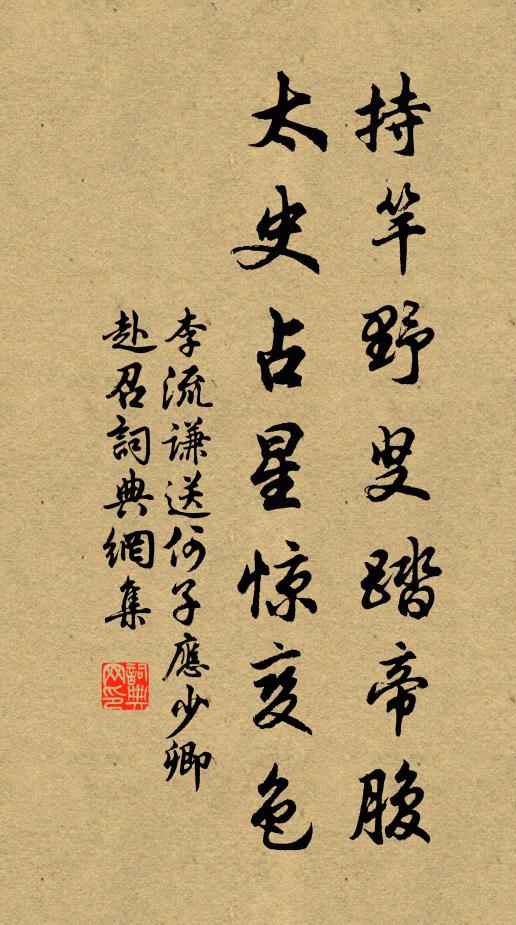 持竿野叟踏帝腹
太史占星惊变色
李流谦送何子應少卿
赴召詞典網集
詞典网印